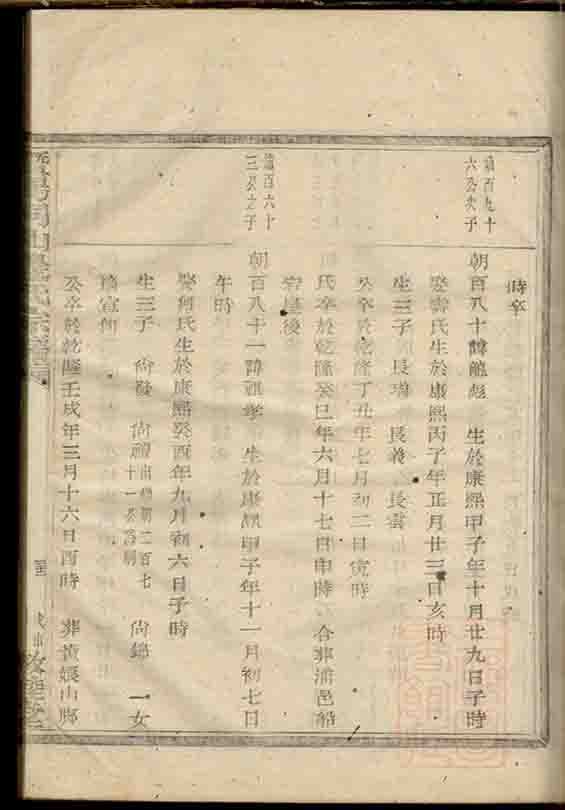 時卒
諱百九十
六公次子
朝百八十諱龍彪 生於康熙甲子年十月廿九日子時
娶壽氏生於康熙丙子年正月廿三日亥時
生三子 長瑞 長義 長雲
公卒於乾隆丁丑年七月初二日寅時
氏卒於乾隆癸巳年六月十七日申時 合葬浦邑船
岩屋後
諱百六十
三公之子
朝百八十一諱祖孝 生於康熙甲子年十一月初七日
午時
娶何氏生於康熙癸酉年九月初六日子時
生三子 尚發 尚禮出繼朝二百七十一公為嗣 尚錦 一女
適宣何
公卒於乾隆壬戌年三月十六日酉時 葬黃娘山腳